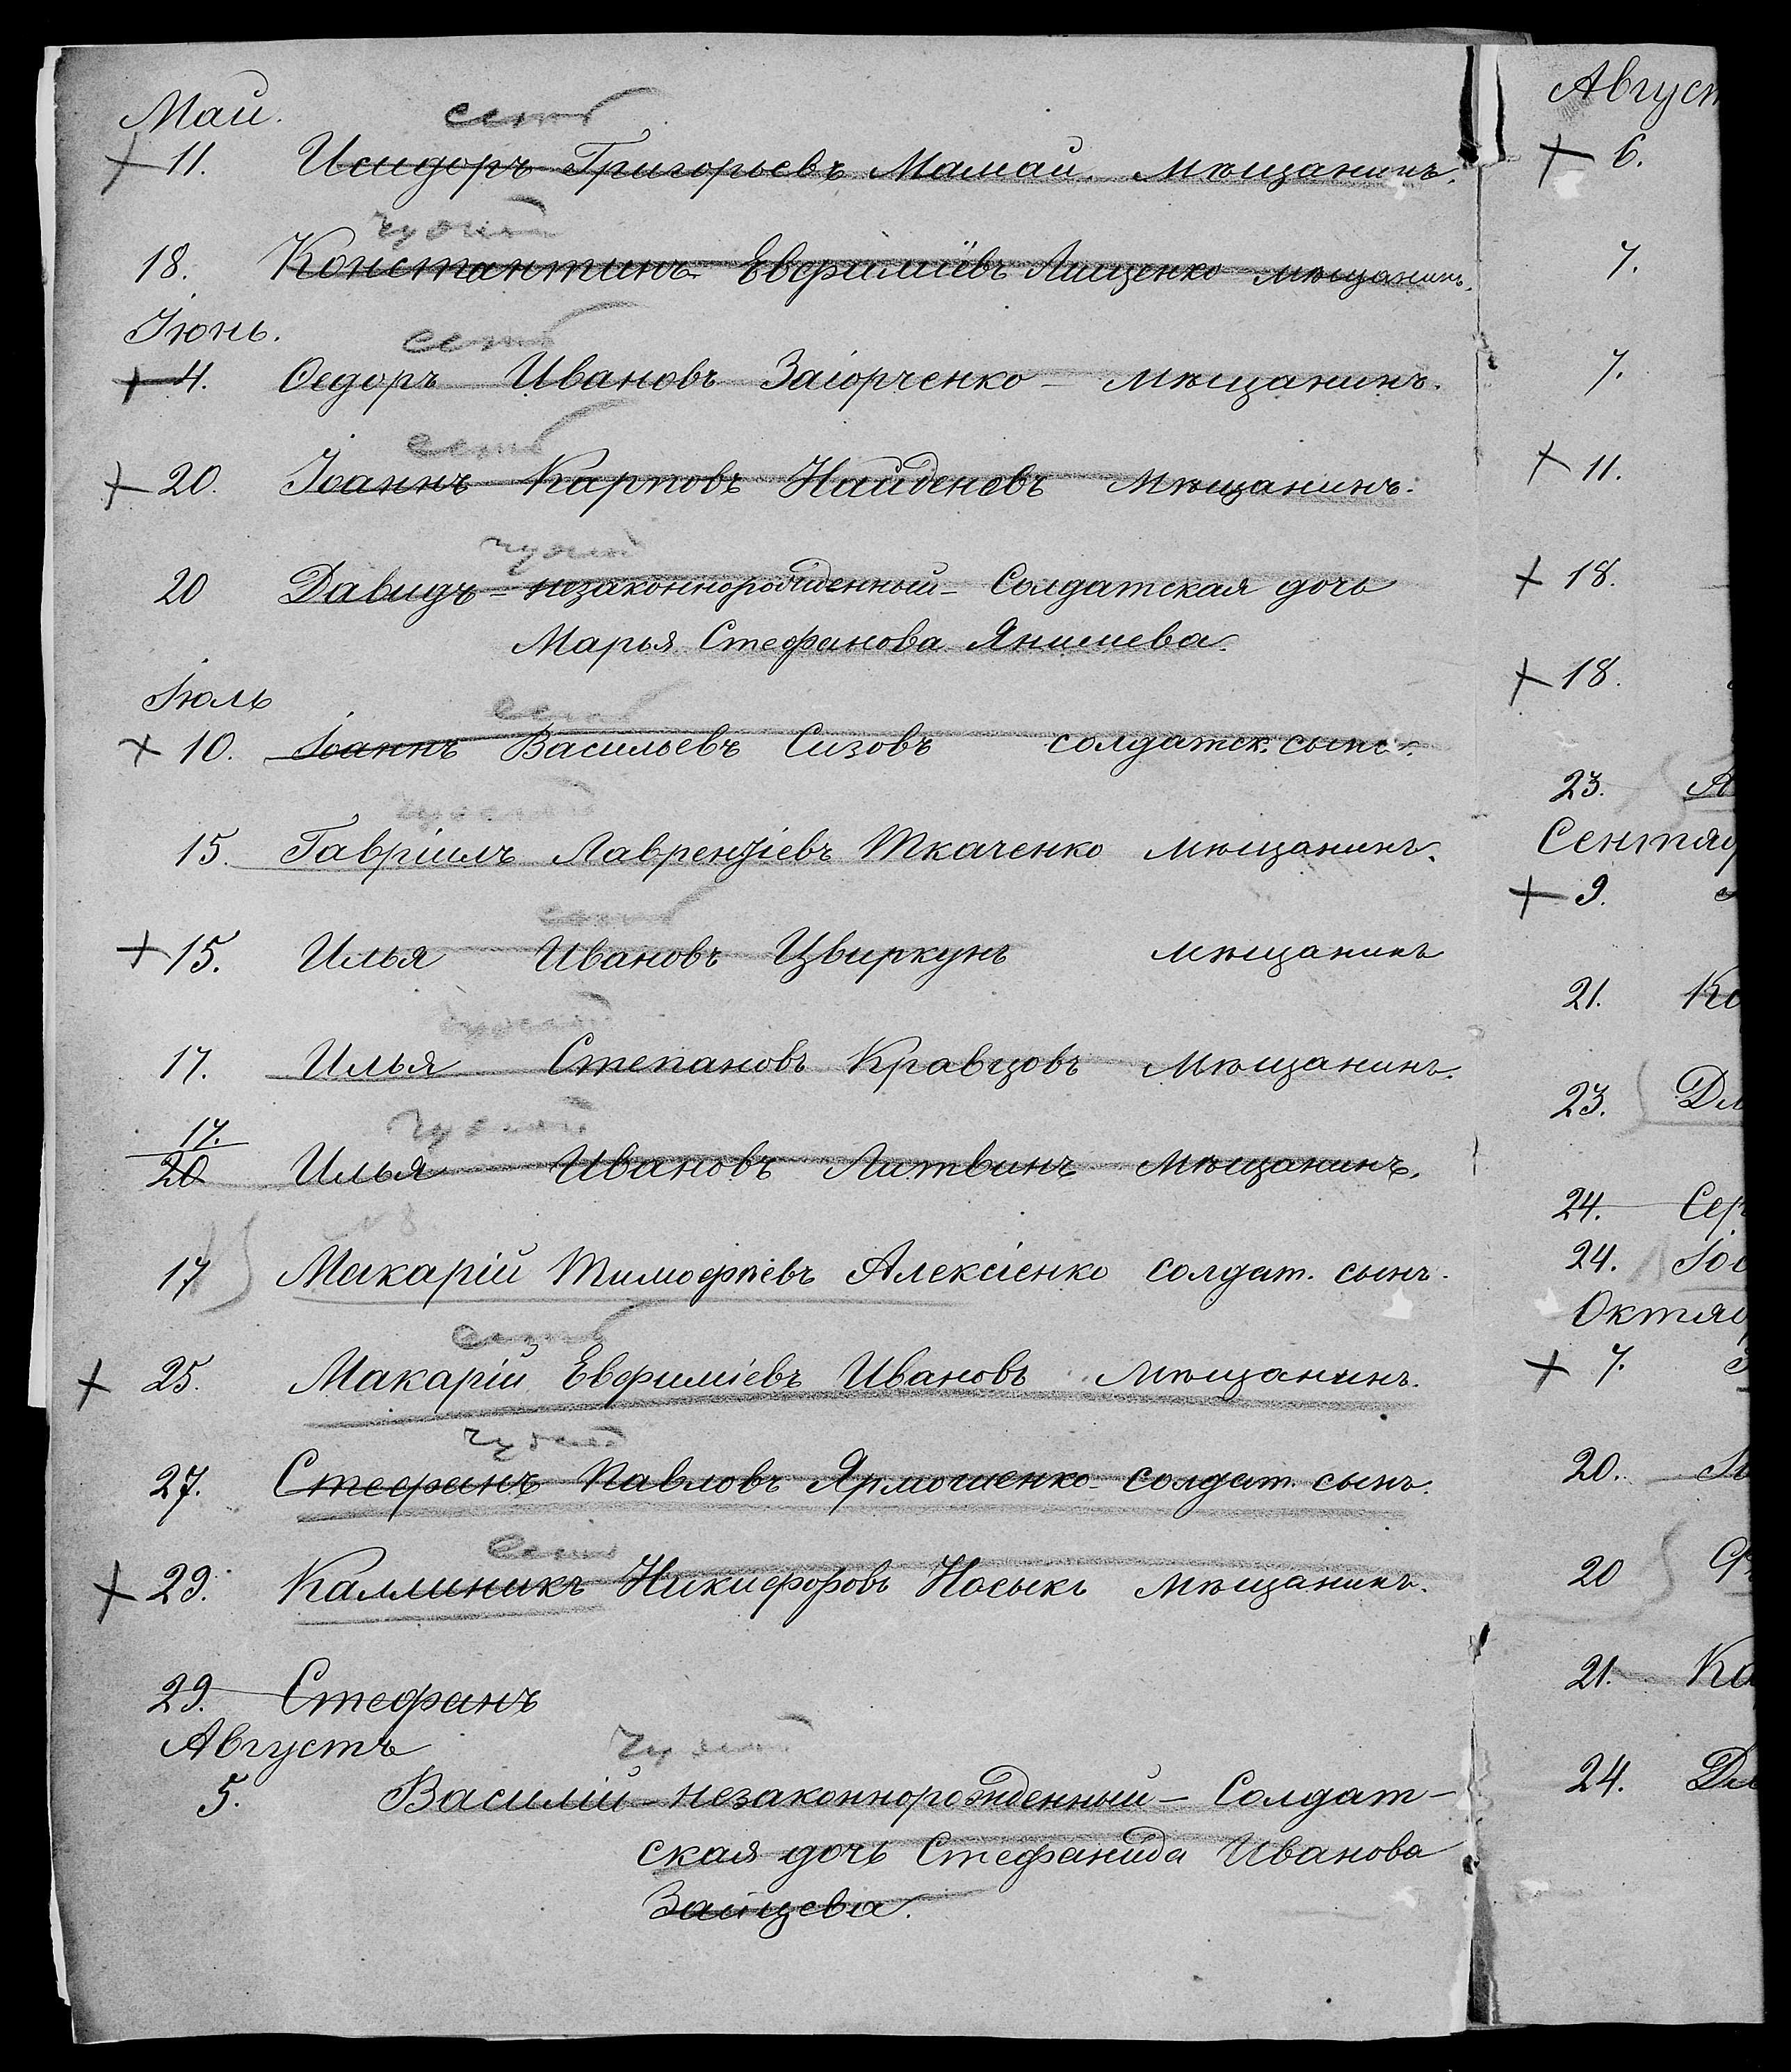 Май.
есть
+ 11. Исидоръ Григорьевъ Мамай. мѣщанинъ.
чужой
18. Константинъ Евфиміевъ Лищенко мѣщанинъ.
Іюнь.
есть
+ 4. Ѳедоръ Ивановъ Заіорченко – мѣщанинъ.
есть
+ 20. Іоаннъ Карповъ Найденовъ мѣщанинъ.
чужой
20 Давидъ – незаконнорожденный – Солдатская дочь
Марья Стефанова
Іюль
есть
+ 10. Іоаннъ Васильевъ Сизовъ солдатск. сынъ.
чужой
15. Гавріилъ Лаврентіевъ Ткаченко мѣщанинъ.
есть
+ 15. Илья Ивановъ Цвиркунъ мѣщанинъ
чужой
17. Илья Степановъ Кравцовъ мѣщанинъ.
чужой
17.
20 Илья Ивановъ Литвинъ мѣщанинъ.
№ 8.
17 Макарій Тимофѣевъ Алексіенко солдат. сынъ.
есть
+ 25. Макарій Евфиміевъ Ивановъ мѣщанинъ.
чужой
27. Стефанъ Павловъ Ярмошенко – солдат. сынъ.
есть
+ 29. Каллиникъ Никифоровъ Носыкъ мѣщанинъ.
29. Стефанъ
Августъ
чужой
5. Василій – незаконнорожденный – Солдат-
ская дочь Стефанида Иванова
Зайцева.
Август
+ 6.
7.
7.
+ 11.
+ 18.
+ 18.
23.
Сентяб
+ 9.
21. Ко
23.
24. Сер
24. Іо
Октяб
+ 7.
20.
20
21. Ка
24.